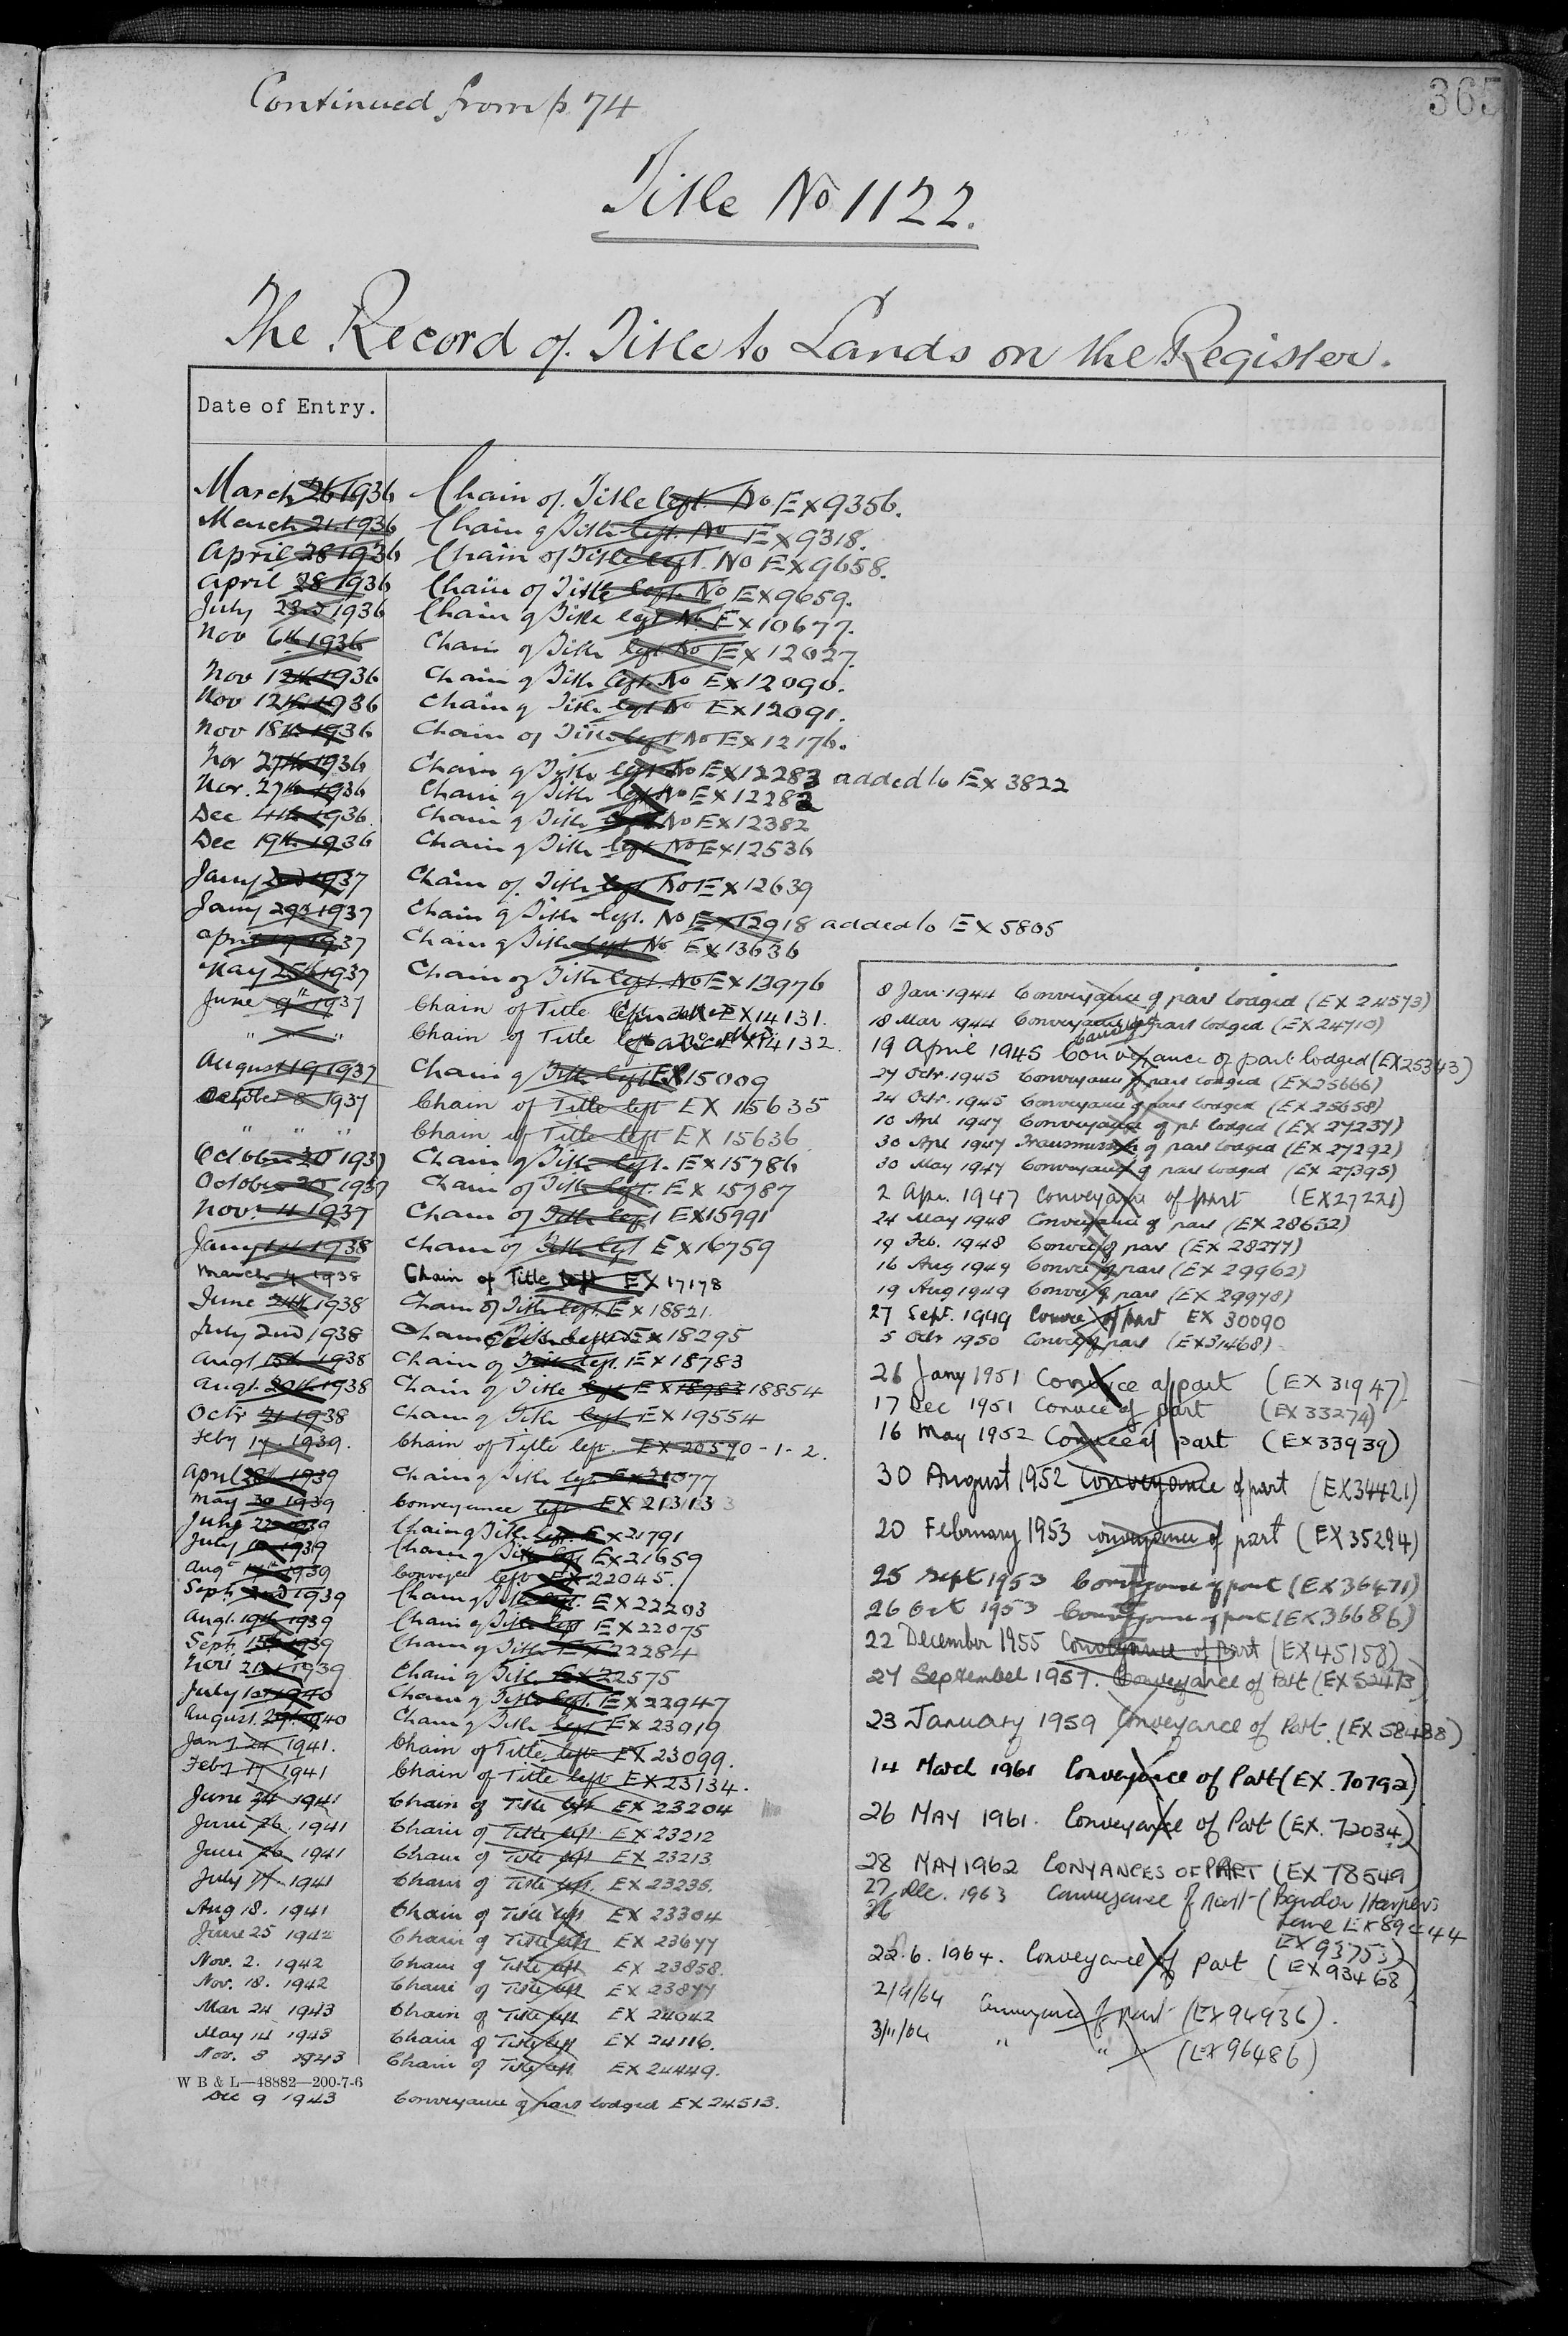 Continued from p. 74
365
Title No 1122.
The Record of Title to Lands on the Register.
Date of Entry.
March 26 1936 Chain of Title left No Ex 9356.
March 21 1936 Chain of Title left No Ex 9318.
April 28 1936 Chain of Title left No Ex 9658.
April 28 1936 Chain of Title left No Ex 9659.
July 23rd 1936 Chain of Title left No Ex 10677.
Nov 6th 1936 Chain of Title left No Ex 12027.
Nov 12th 1936 Chain of Title left No Ex 12090.
Nov 12th 1936 Chain of Title left No Ex 12091.
Nov 18th 1936 Chain of Title left No Ex 12176.
Nov 27th 1936 Chain of Title left No Ex 12283 added to Ex 3822
Nov. 27th 1936 Chain of Title left No Ex 12282
Dec 4th 1936 Chain of Title left No Ex 12382
Dec 19th 1936 Chain of Title left No Ex 12536
Jany 2nd 1937 Chain of Title left No Ex 12639
Jany 29th 1937 Chain of Title left. No Ex 12918 added to Ex 5805
April 19 1937 Chain of Title left No. Ex 13636
May 25th 1937 Chain of Title left. No Ex 13976
June 9th 1937 Chain of Title Ex 14131.
" " Chain of Title left Ex 14132
August 19 1937 Chain of Title left Ex 15009
October 8 1937 Chain of Title left EX 15635
" " " Chain of Title left EX 15636
October 20 1937 Chain of Title left. Ex 15786
October 20 1937 Chain of Title left. Ex 15787
Nov. 4 1937 Chain of Title left Ex 15991
Jany 14 1938 Chain of Title left Ex 16759
March 4 1938 Chain of Title left EX 17178
June 24th 1938 Chain of Title left. Ex 18821.
July 2nd 1938 Chain of Title left Ex 18295
Augt 15th 1938 Chain of Title left. Ex 18783
Augt. 20th 1938 Chain of Title left Ex 18783 18854
Octr 21 1938 Chain of Title left Ex 19554
Feby 17 1939. Chain of Title left. EX 20570-1-2.
April 28th 1939 Chain of Title left Ex 21077
May 30 1939 Conveyance left EX 21313
July 22 1939 Chain of Title left. Ex 21791
July 1939 Chain of Title left Ex 21659
Augt 1939 Conveyce left EX 22045.
Sept. 2nd 1939 Chain of Title left. Ex 22203
Augt. 19th 1939 Chain of Title left Ex 22075
Sept 15th 1939 Chain of Title Ex 22284
Nov 21st 1939 Chain of Title Ex 22575
July 1st 1940 Chain of Title left. Ex 22947
August. 29th 1940 Chain of Title left Ex 23019
Jany 24 1941. Chain of Title left EX 23099.
Feby 17 1941 Chain of Title left EX 23134.
June 24 1941 Chain of Title left EX 23204
June 26. 1941 Chain of Title left EX 23212
June 26 1941 Chain of Title left EX 23213
July 17 1941 Chain of Title left. EX 23235.
Aug 18. 1941 Chain of Title left EX 23304
June 25 1942 Chain of Title left EX 23677
Nov. 2. 1942 Chain of Title left EX 23858.
Nov. 18. 1942 Chain of Title left EX 23877
Mar 24 1943 Chain of Title left EX 24042
May 14 1943 Chain of Title left EX 24116.
Nov. 8 1943 Chain of Title left EX 24449.
W B & L—48882—200-7-6
Dec 9 1943 Conveyance of part lodged EX 24513.
8 Jan. 1944 Conveyance of part lodged (EX 24573)
18 Mar 1944 Conveyance of part lodged (EX 24710)
19 April 1945 Conveyance of part lodged (EX 25343)
27 Octr. 1945 Conveyance of part lodged (EX 25666)
24 Octr. 1945 Conveyance of part lodged (EX 25658)
10 Apl 1947 Conveyance of pt lodged (EX 27237)
30 Apl 1947 Transmission of part lodged (EX 27292)
30 May 1947 Conveyance of part lodged (EX 27395)
2 Apr. 1947 Conveyance of part (EX 27221)
24 May 1948 Conveyance of part (EX 28652)
19 Feb. 1948 Convce of part (EX 28277)
16 Aug 1949 Convce of part (EX 29962)
19 Aug 1949 Convce of part (EX 29978)
27 Sept. 1949 Convce of part EX 30090
5 Octr 1950 Convce of part (EX 31468)
26 Jany 1951 Convce of part (EX 31947)
17 Dec 1951 Convce of part (EX 33274)
16 May 1952 Convce of part (EX 33939)
30 August 1952 Conveyance of part (EX 34421)
20 February 1953 Conveyance of part (EX 35294)
25 Sept 1953 Conveyance of part (EX 36471)
26 Oct 1953 Conveyance of part (EX 36686)
22 December 1955 Conveyance of part (EX 45158)
27 September 1957. Conveyance of Part (EX 52473)
23 January 1959 Conveyance of Part. (EX 58488)
14 March 1961 Conveyance of Part (EX. 70792)
26 MAY 1961. Conveyance of Part (EX. 72034)
28 MAY 1962 CONYANCES OF PART (EX 78549)
27 Dec. 1963 Conveyance of part (Harpers
Lane EX 89244
EX 93753)
22.6.1964. Conveyance of Part (EX 93468)
2/9/64 Conveyance of part (EX 94936).
3/11/64 " " (EX 96486)